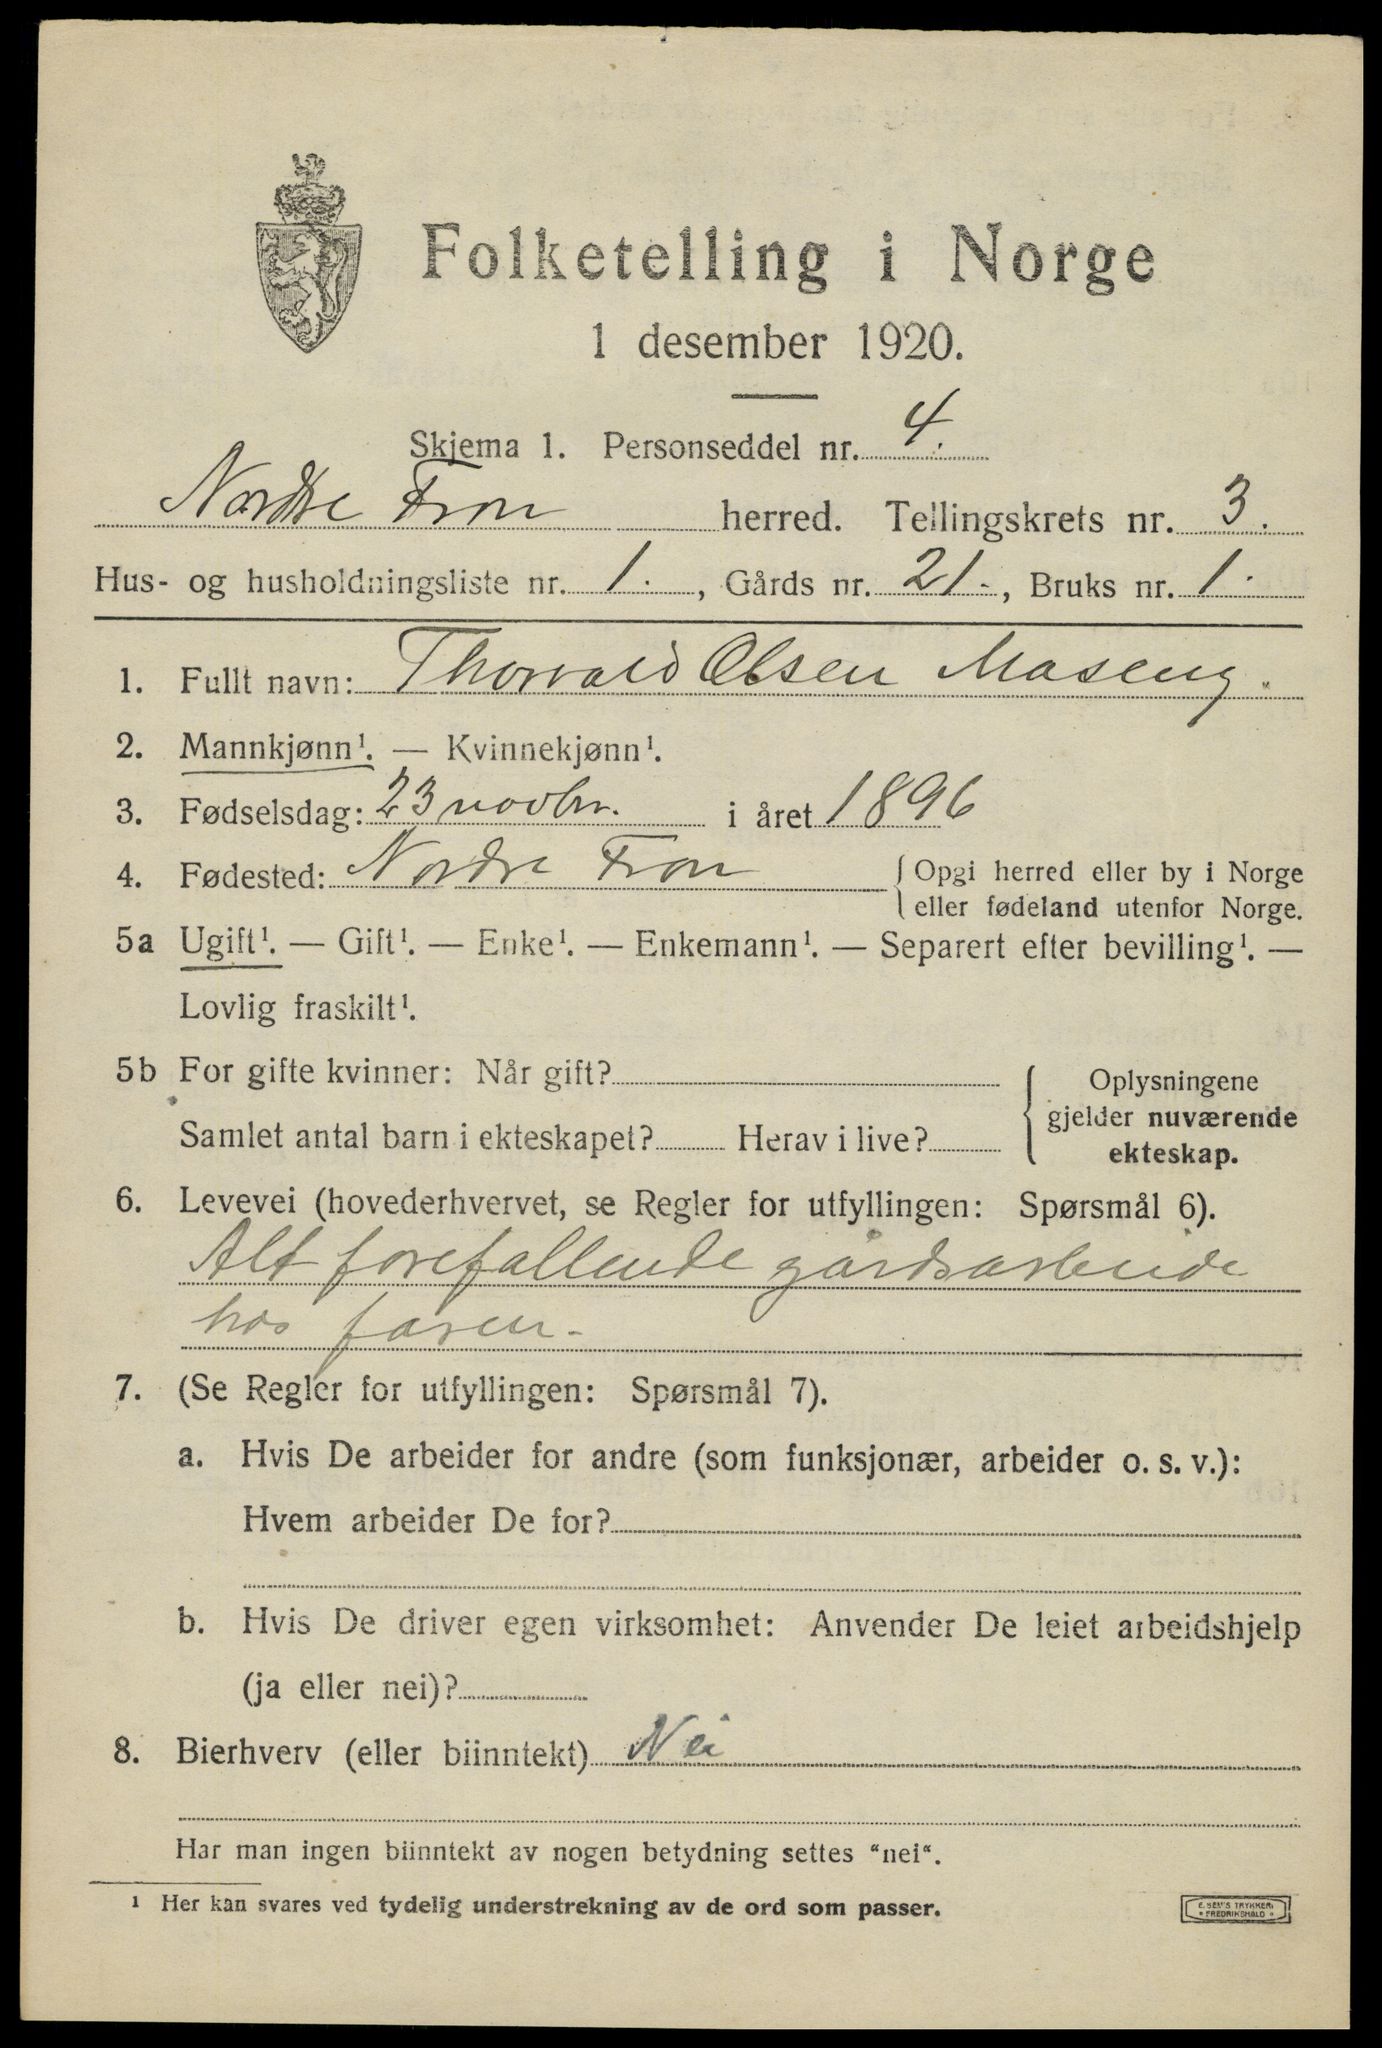 Folketelling i Norge
1 desember 1920.
Skjema 1. Personseddel nr. 4.
Nordre Fron herred. Tellingskrets nr. 3.
Hus- og husholdningsliste nr. 1., Gårds nr. 21., Bruks nr. 1.
1. Fullt navn: Thorvald Olsen Maseng.
2. Mannkjønn¹. — Kvinnekjønn¹.
3. Fødselsdag: 23 novbr. i året 1896
4. Fødested: Nordre Fron { Opgi herred eller by i Norge
eller fødeland utenfor Norge.
5a Ugift¹. — Gift¹. — Enke¹. — Enkemann¹. — Separert efter bevilling¹. —
Lovlig fraskilt¹.
5b For gifte kvinner: Når gift? { Oplysningene
gjelder nuværende
Samlet antal barn i ekteskapet? Herav i live?
ekteskap.
6. Levevei (hovederhvervet, se Regler for utfyllingen: Spørsmål 6).
Alt forefallende gårdsarbeide
hos faren.
7. (Se Regler for utfyllingen: Spørsmål 7).
a. Hvis De arbeider for andre (som funksjonær, arbeider o. s. v.):
Hvem arbeider De for?
b. Hvis De driver egen virksomhet: Anvender De leiet arbeidshjelp
(ja eller nei)?
8. Bierhverv (eller biinntekt) Nei
Har man ingen biinntekt av nogen betydning settes "nei".
¹ Her kan svares ved tydelig understrekning av de ord som passer.
E. SEM'S TRYKKERI
FREDRIKSHALD